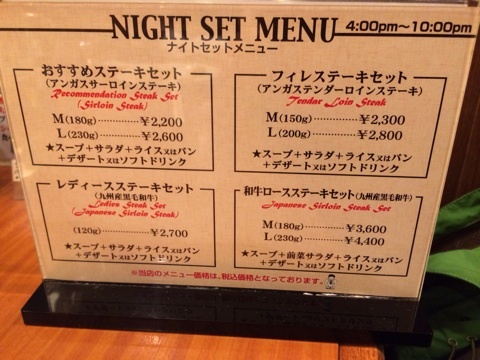 NIGHT SET MENU 4:00pm～10:00pm
ナイトセットメニュー
おすすめステーキセット
（アンガスサーロインステーキ）
Recommendation Steak Set
(Sirloin Steak)
M(180g)…………￥2,200
L(230g)…………￥2,600
★スープ＋サラダ＋ライス又はパン
＋デザート又はソフトドリンク
フィレステーキセット
（アンガステンダーロインステーキ）
Tendar Loin Steak
M(150g)…………￥2,300
L(200g)…………￥2,800
★スープ＋サラダ＋ライス又はパン
＋デザート又はソフトドリンク
レディースステーキセット
（九州産黒毛和牛）
Ledies Steak Set
(Japanese Sirloin Steak)
(120g)…………￥2,700
★スープ＋サラダ＋ライス又はパン
＋デザート又はソフトドリンク
和牛ロースステーキセット（九州産黒毛和牛）
Japanese Sirloin Steak Set
M(180g)…………￥3,600
L(230g)…………￥4,400
★スープ＋前菜サラダ＋ライス又はパン
＋デザート又はソフトドリンク
※当店のメニュー価格は、税込価格となっております。